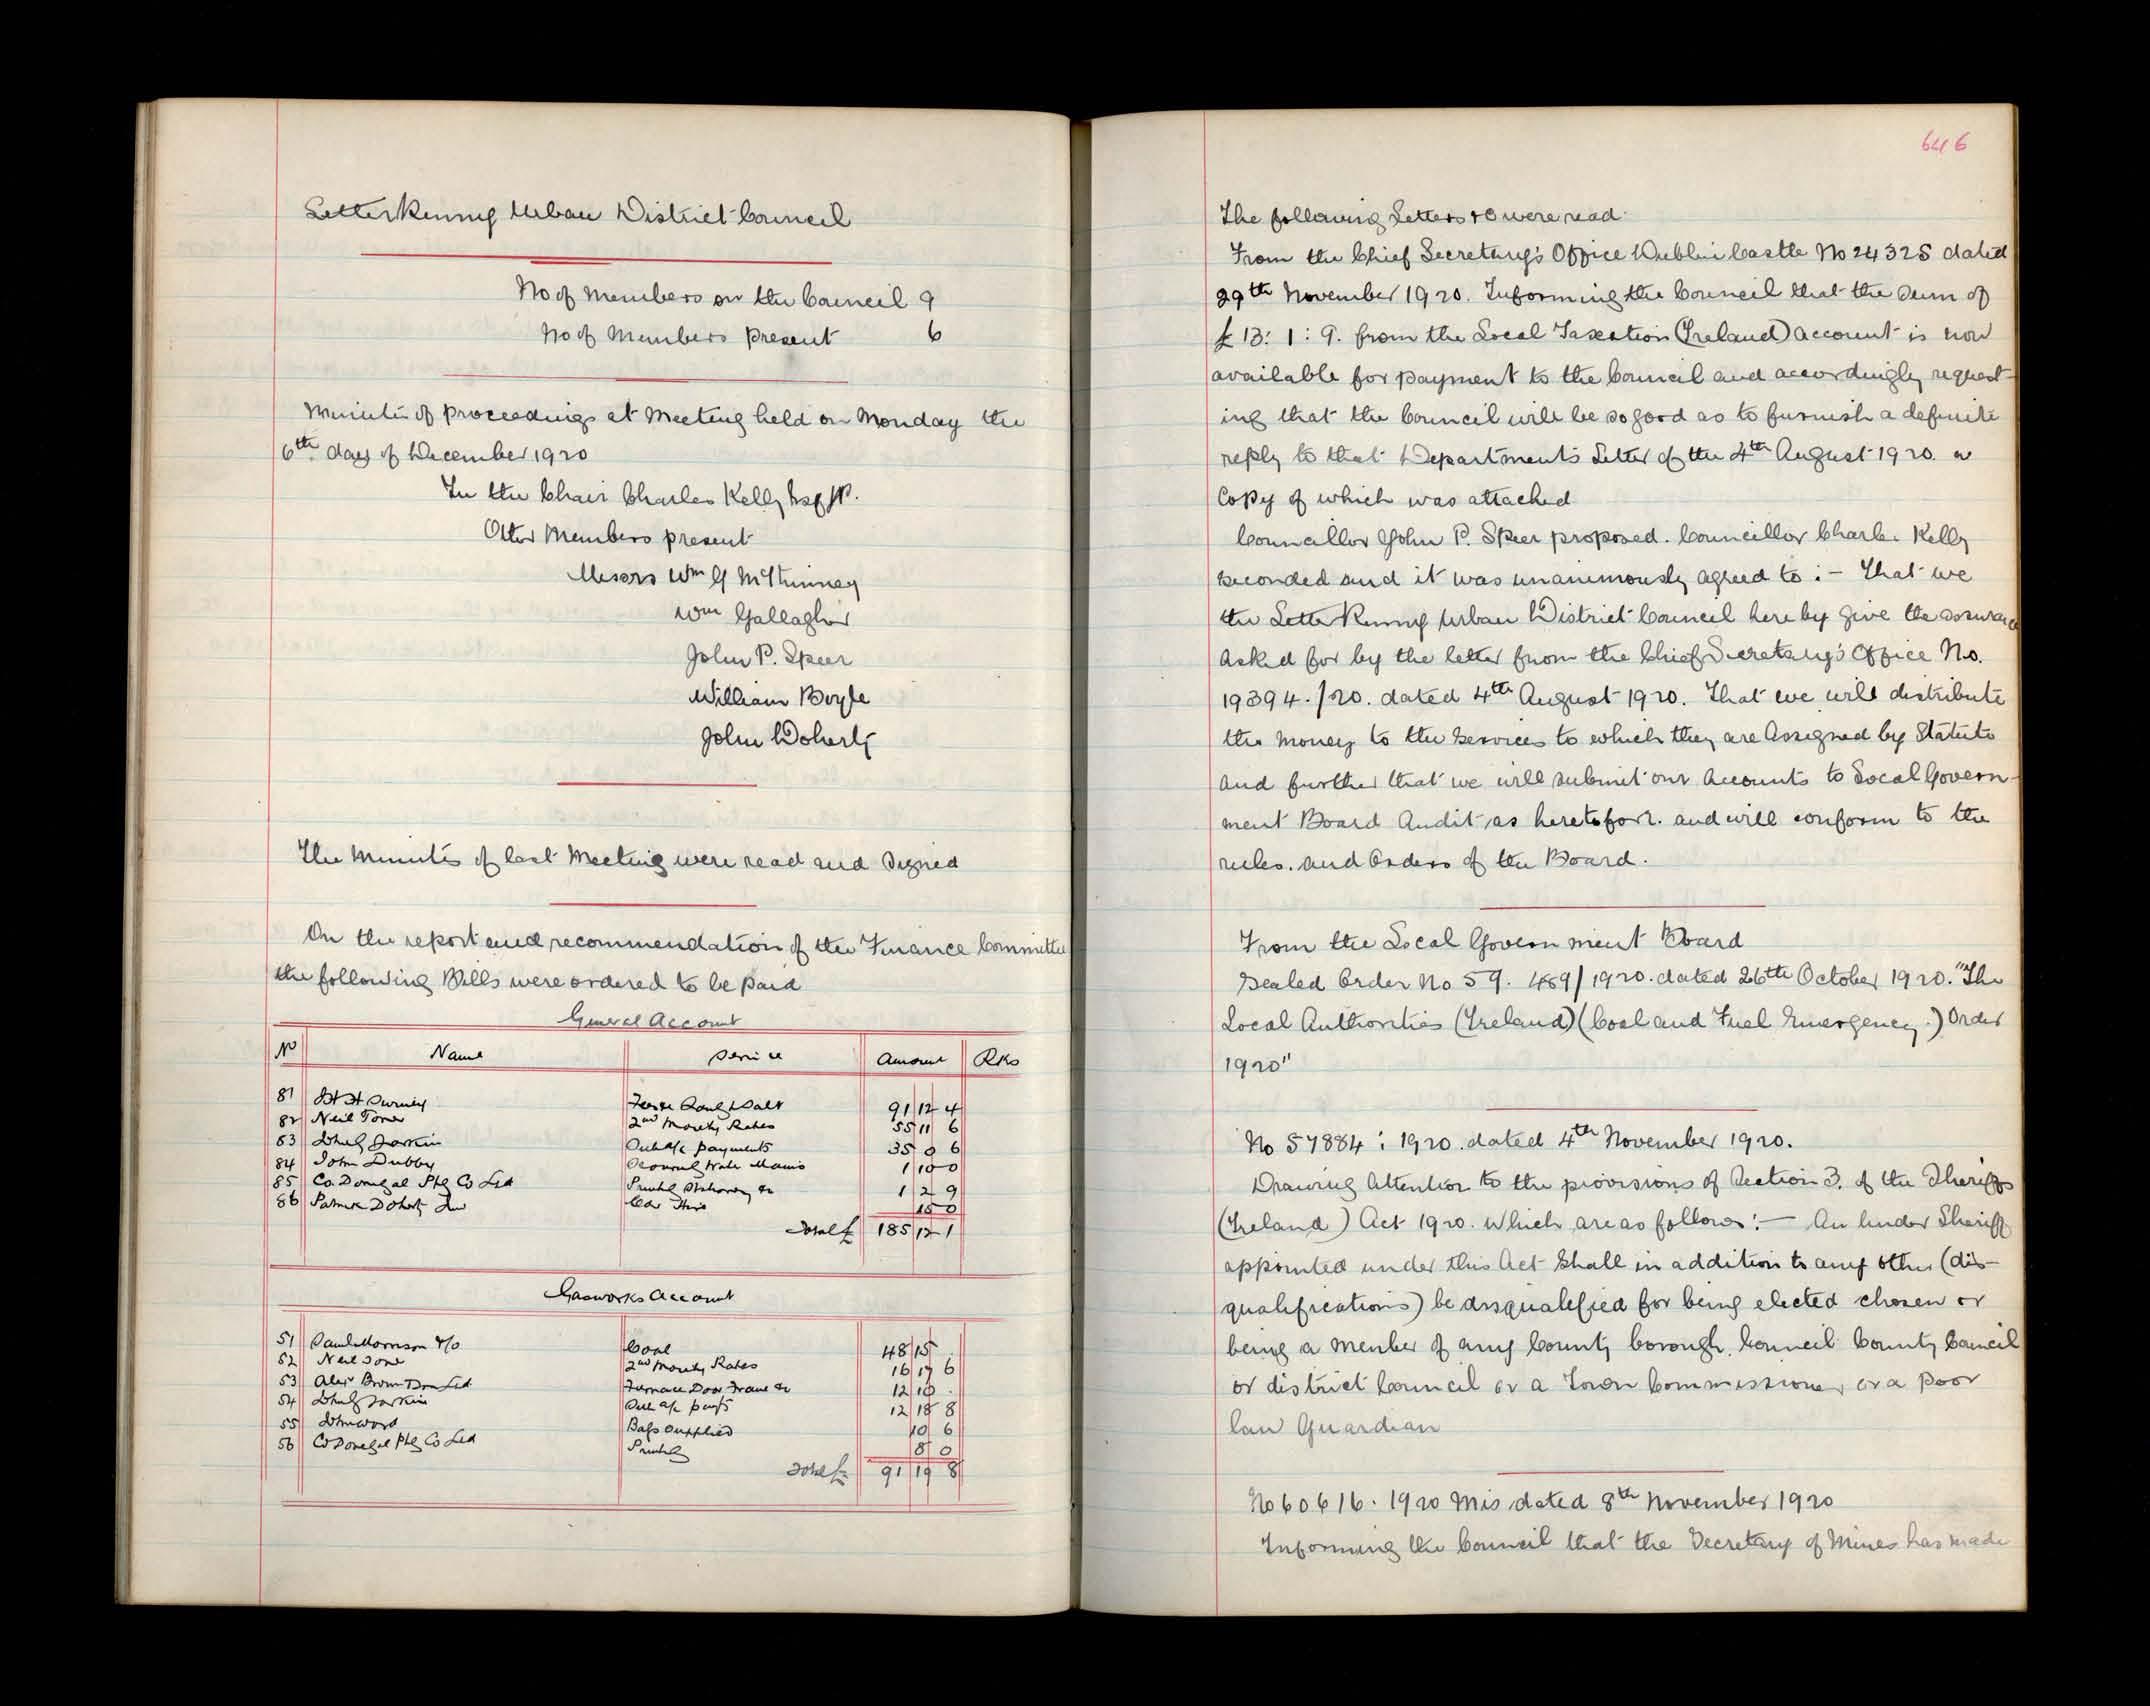 LetterKenny Urban District Council
No of Members on the Council 9
No of Members present 6
Minutes of proceedings at Meeting held on Monday the
6th day of December 1920
In the Chair Charles Kelly Esq JP.
Other Members present
Messrs Wm G McKinney
Wm Gallagher
John P. Speer
William Boyle
John Doherty
The Minutes of last Meeting were read and signed
On the report and recommendation of the Finance Committee
the following Bills were ordered to be paid
General Account
No Name Service Amount Rks
81 91 12 4
82 Neil Toner 2nd Moiety Rates 55 11 6
83 Larkin Out a/c payments 35 0 6
84 John Dubby Scouring Water Mains 1 10 0
85 Co. Donegal Ptg Co Ltd Printing Stationery &c 1 2 9
86 Patrick Doherty Jnr Car Hire 15 0
Total £ 185 12 1
Gasworks Account
51 Saml Morrison &Co Coal 48 15 .
52 Neil Toner 2nd Moiety Rates 16 17 6
53 Alex Brown Son Ltd Furnace Door Frame &c 12 10 .
54 Larkin Out a/c payts 12 18 8
55 Bags supplied 10 6
56 Co Donegal Ptg Co Ltd Printing 8 0
Total £ 91 19 8
646
The following Letters &c were read
From the Chief Secretary's Office Dublin Castle No 24325 dated
29th November 1920. Informing the Council that the Sum of
£13: 1: 9. from the Local Taxation (Ireland) account is now
available for payment to the Council and accordingly request-
ing that the Council will be so good as to furnish a definite
reply to that Department's Letter of the 4th August 1920. a
Copy of which was attached
Councillor John P. Speer proposed. Councillor Charles Kelly
seconded and it was unanimously agreed to :- That we
the LetterKenny Urban District Council here by give the assurance
asked for by the letter from the Chief Secretary's Office No.
19394./20. dated 4th August 1920. That we will distribute
the money to the services to which they are assigned by Statute
and further that we will submit our Accounts to Local Govern-
ment Board Audit as heretofore. and will conform to the
rules. and Orders of the Board.
From the Local Government Board
Sealed Order No 59. 489/1920. dated 26th October 1920. "The
Local Authorities (Ireland) (Coal and Fuel Emergency.) Order
1920"
No 57884 : 1920. dated 4th November 1920.
Drawing Attention to the provisions of Section 3. of the Sheriffs
(Ireland) Act 1920. which are as follows :- An Under Sheriff
appointed under this Act shall in addition to any other (dis-
qualifications) be disqualified for being elected chosen or
being a member of any County borough. Council County Council
or district Council or a Town Commissioner or a Poor
law Guardian
No 60616. 1920 Mis dated 8th November 1920
Informing the Council that the Secretary of Mines has made